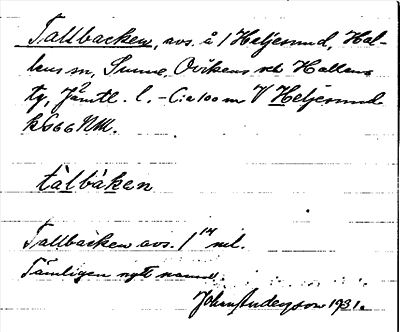 Tallbacken, avs. å 1 Heljesund, Hal-
lens sn, Sunne, Ovikens och Hallens
tg, Jämtl. l. – C:a 100 m V Heljesund
k 566 NM.
talbaken
Tallbacken avs. 1¹⁴ mtl.
Tämligen nytt namn.
Johan Anderson 1931.